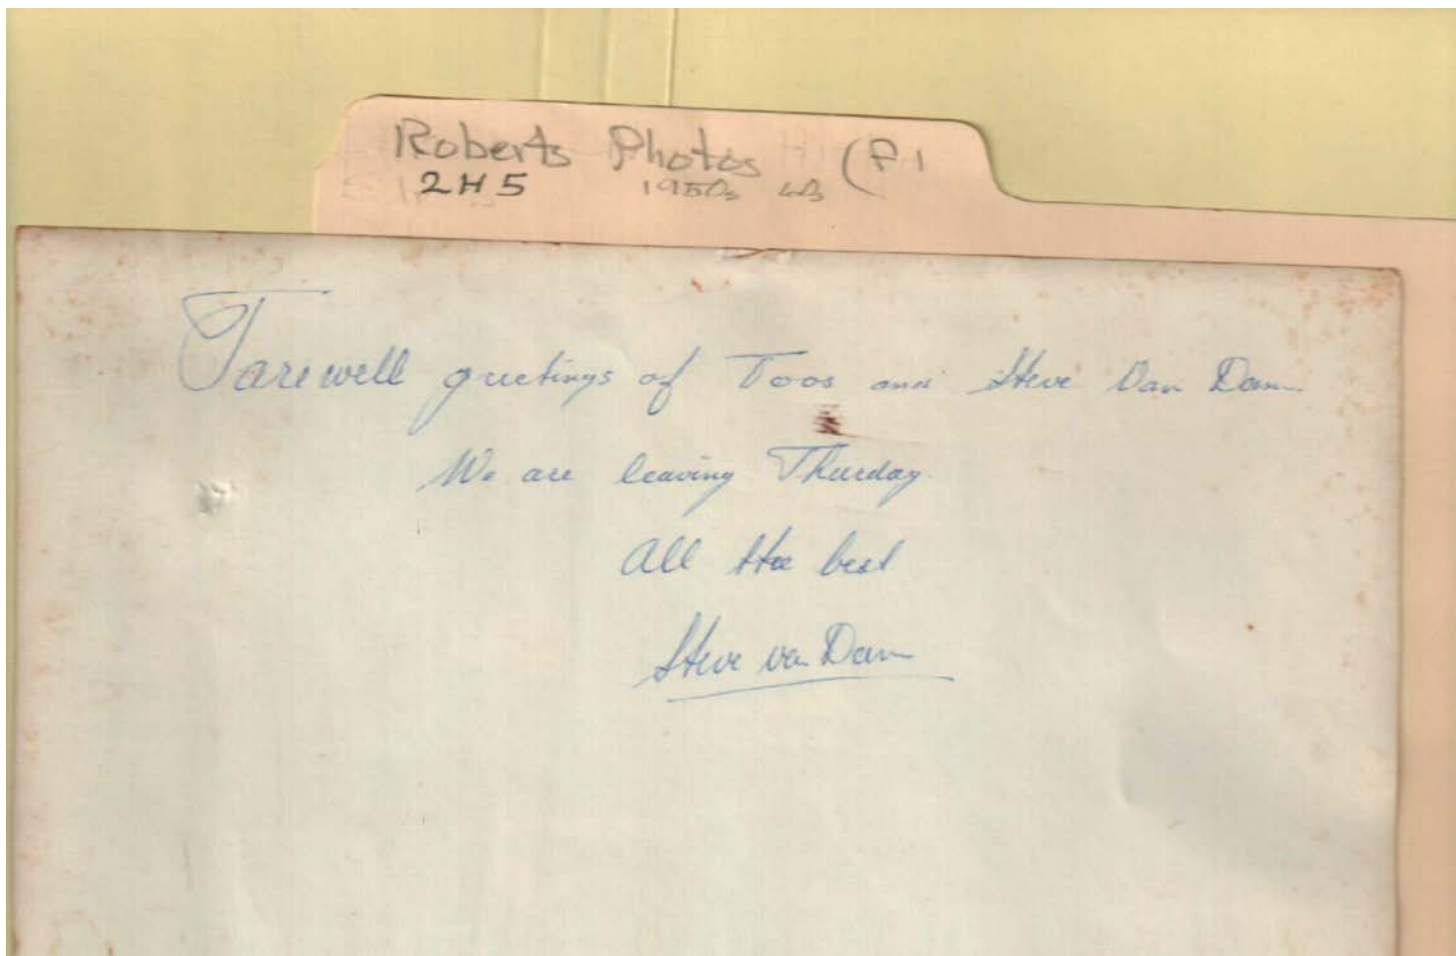 Roberts Photos (P.1
2H5 1950s
Farewell greetings of Toos and Steve Van Dam
We are leaving Thursday.
All the best
Steve van Dam